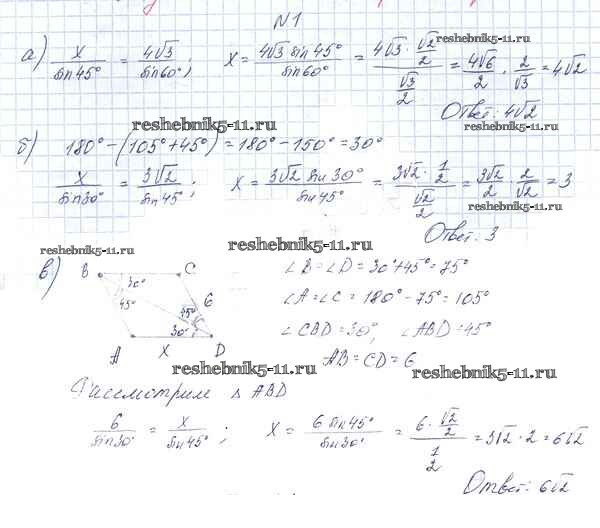 N1
а) x/sin45° = 4√3/sin60°; x = 4√3 sin45°/sin60° = (4√3 · √2/2)/(√3/2) = 4√6/2 · 2/√3 = 4√2
reshebnik5-11.ru
reshebnik5-11.ru
Ответ: 4√2
reshebnik5-11.ru
б) 180° - (105° + 45°) = 180° - 150° = 30°
x/sin30° = 3√2/sin45°; x = 3√2 sin30°/sin45° = (3√2 · 1/2)/(√2/2) = 3√2/2 · 2/√2 = 3
reshebnik5-11.ru
Ответ: 3
reshebnik5-11.ru
reshebnik5-11.ru
в) B C
30°
45°
6
45°
30°
A X D
∠B = ∠D = 30° + 45° = 75°
∠A = ∠C = 180° - 75° = 105°
∠CBD = 30°, ∠ABD = 45°
AB = CD = 6
reshebnik5-11.ru
reshebnik5-11.ru
Рассмотрим Δ ABD
6/sin30° = x/sin45°; x = 6 sin45°/sin30° = (6 · √2/2)/(1/2) = 3√2 · 2 = 6√2
Ответ: 6√2